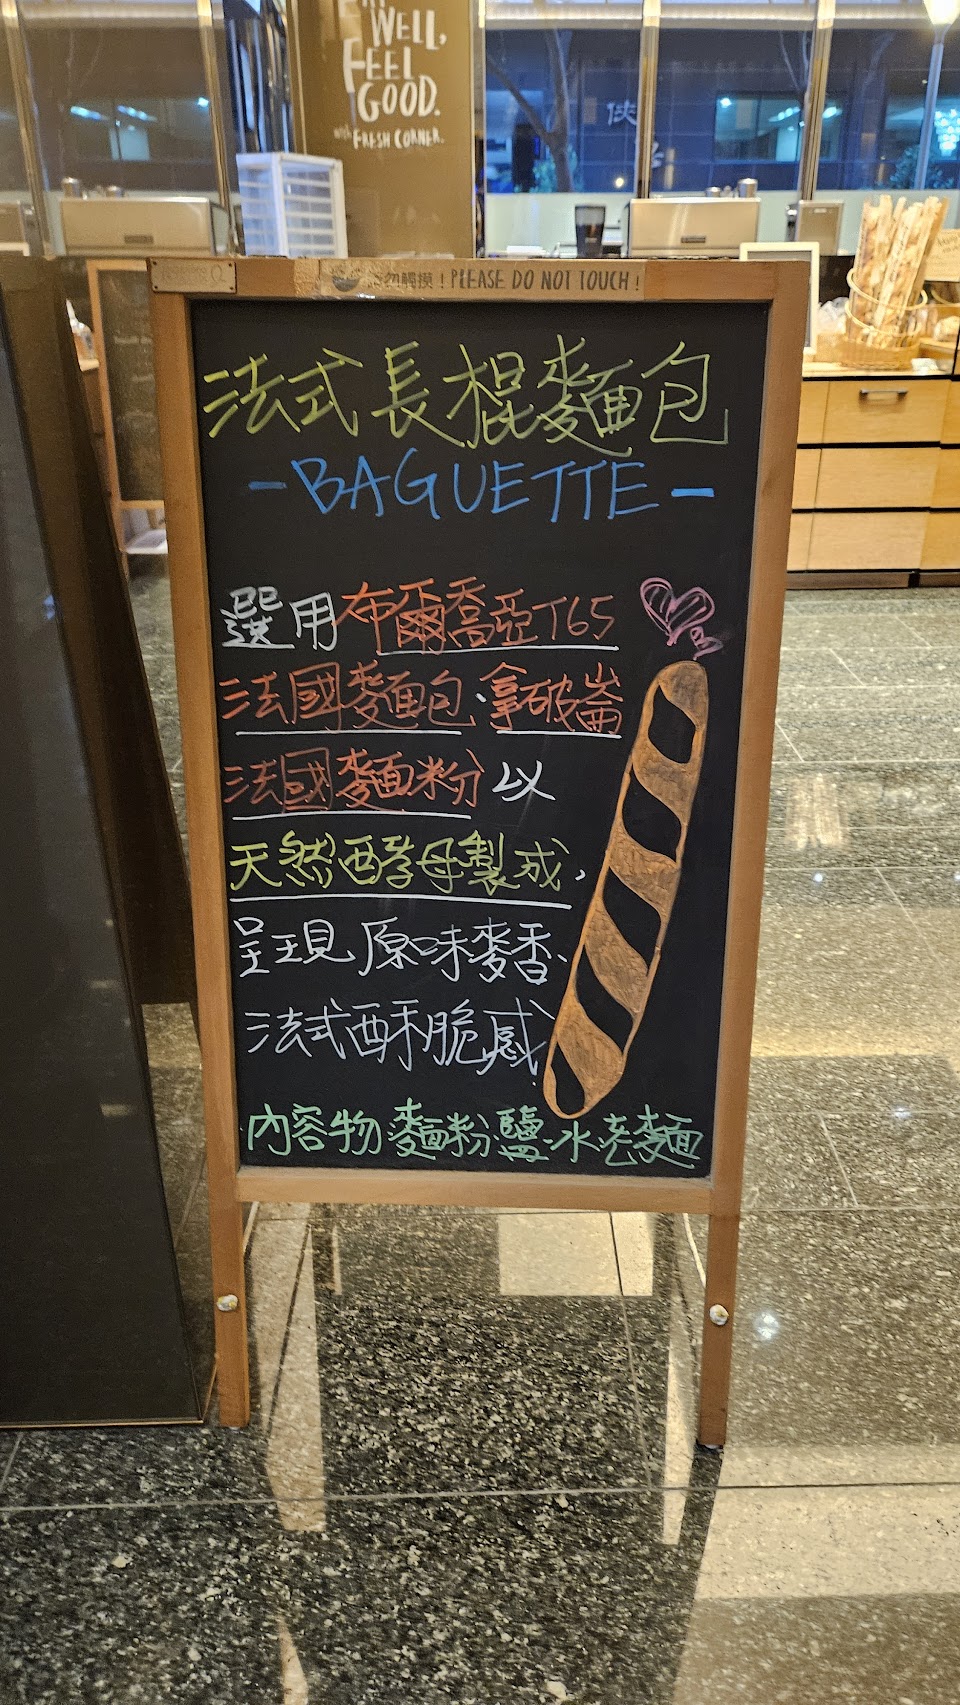 EAT
WELL,
FEEL
GOOD.
with FRESH CORNER.
俠
請勿觸摸！PLEASE DO NOT TOUCH！
法式長棍麵包
-BAGUETTE-
選用布爾喬亞T65
法國麵包、拿破崙
法國麵粉以
天然酵母製成，
呈現原味麥香、
法式酥脆感
內容物:麵粉.鹽.水.老麵